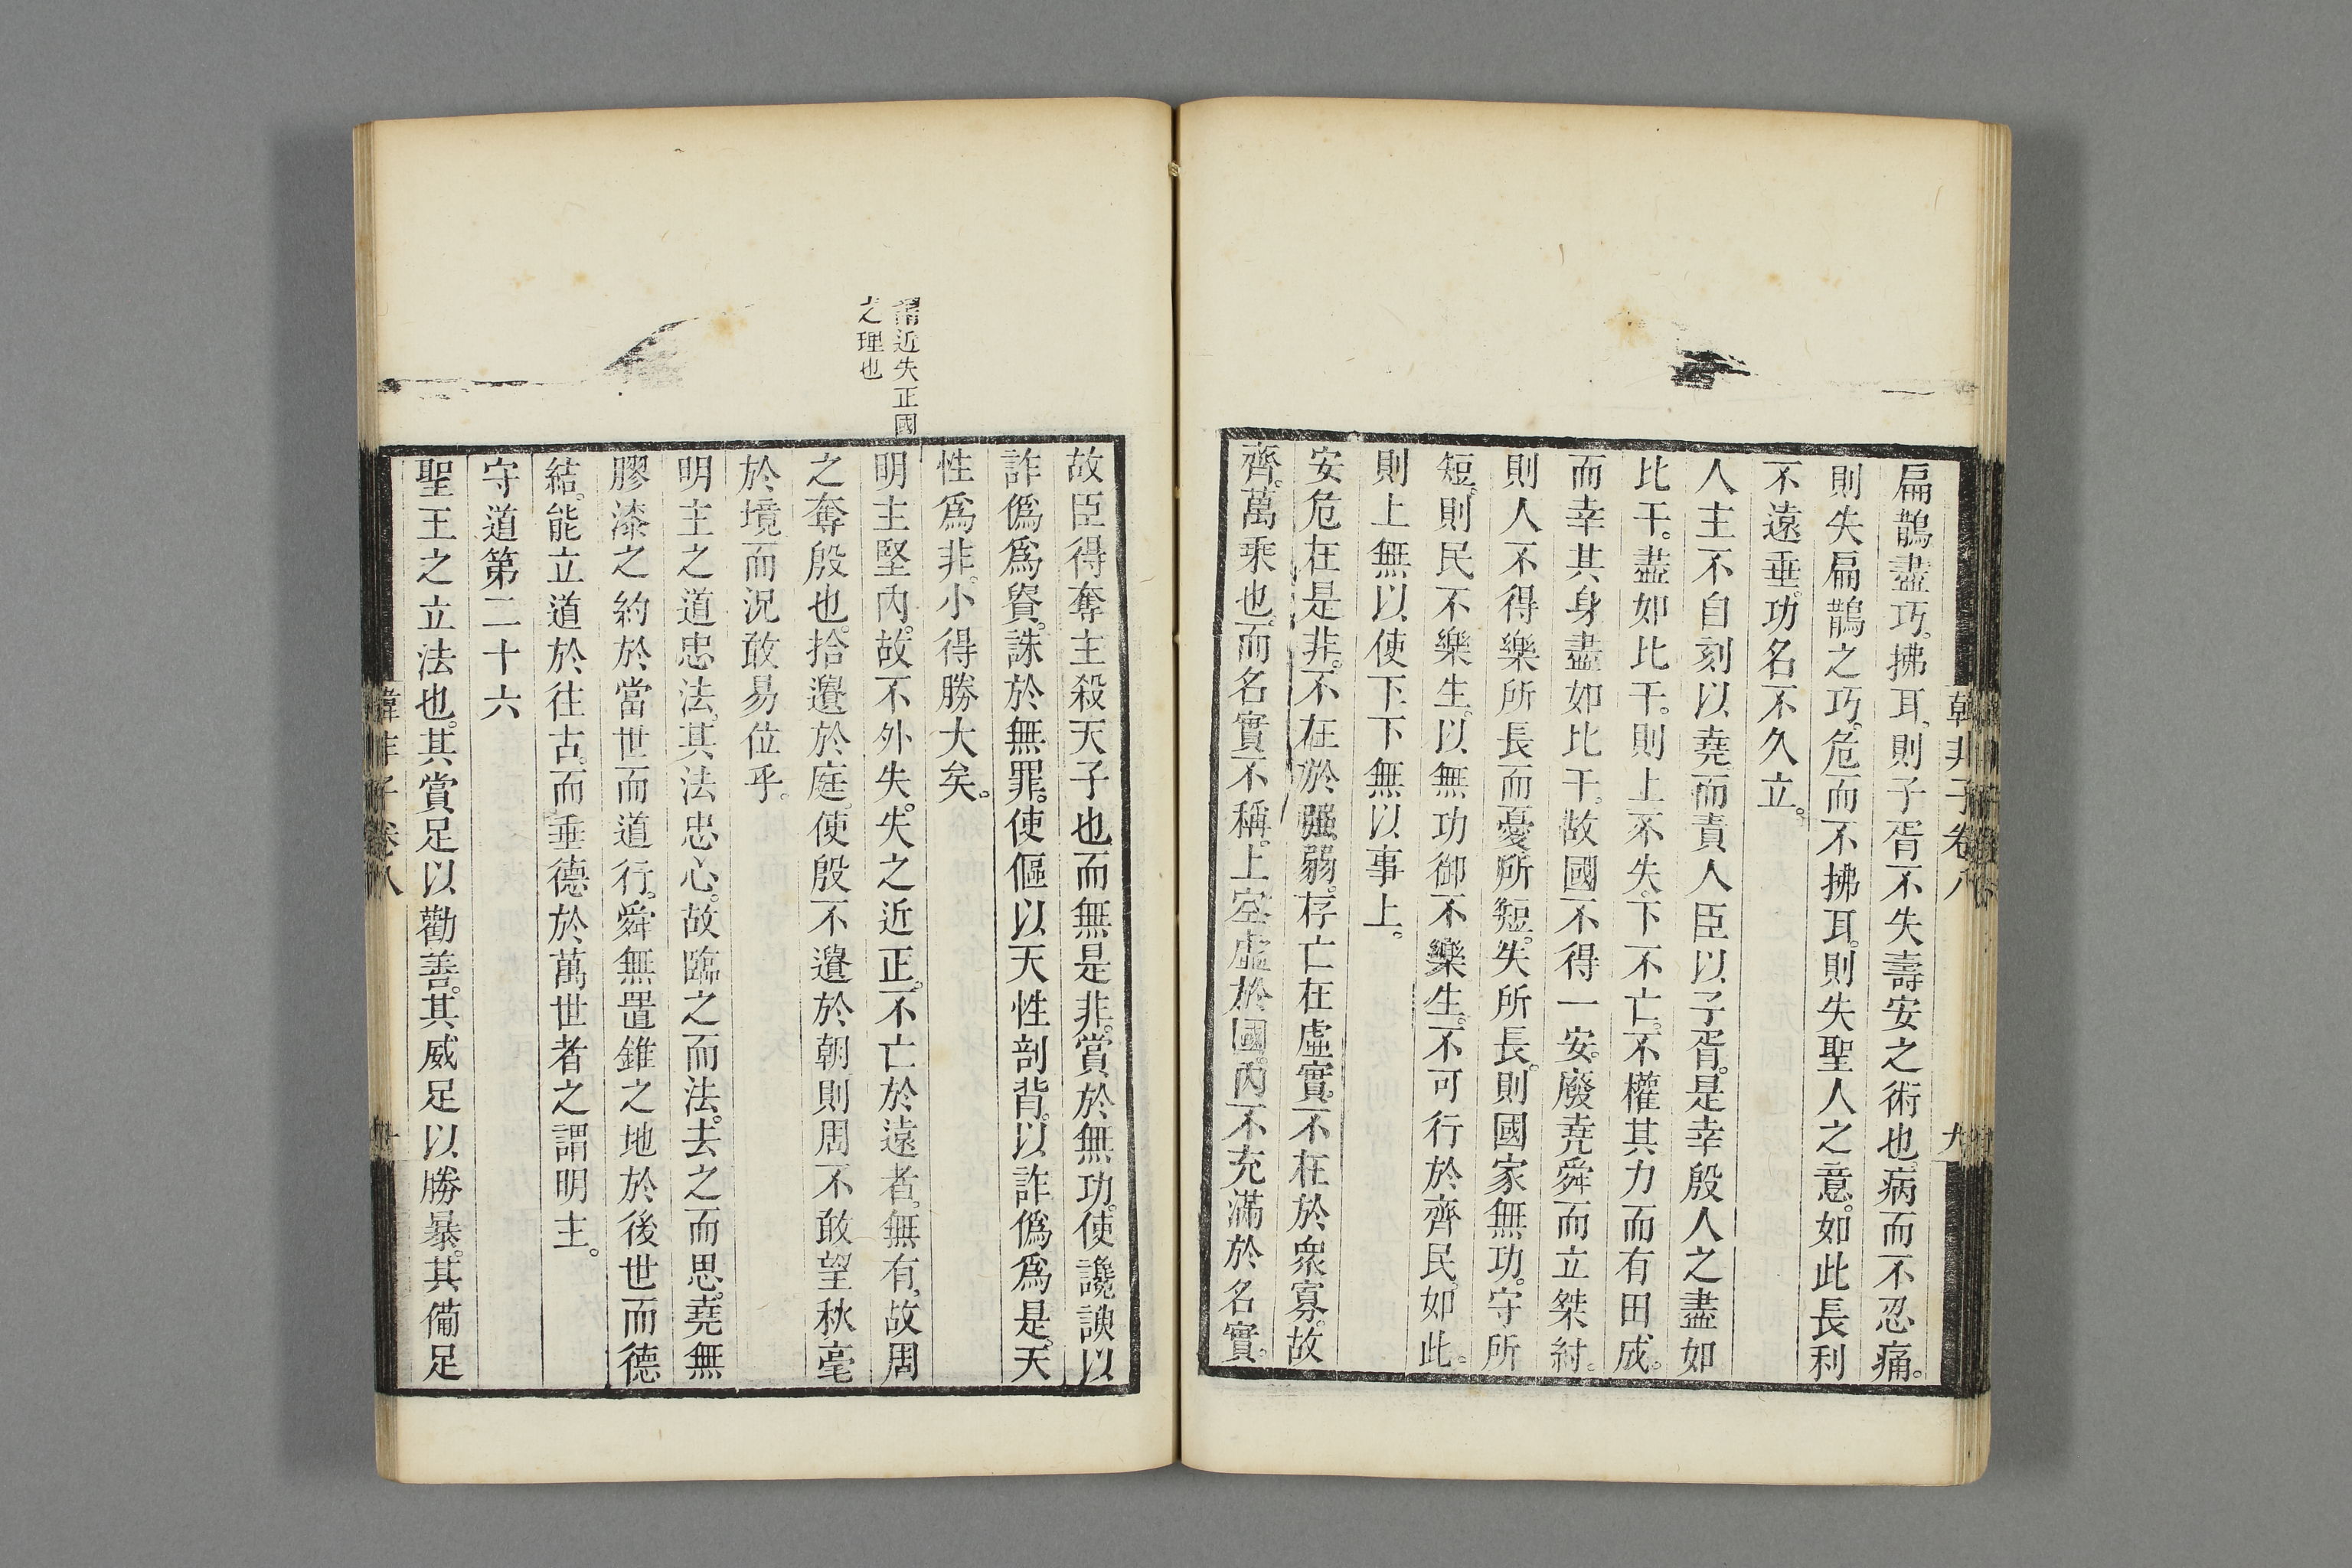 韓非子卷八
九
扁鵲盡巧。拂耳則子胥不失。壽安之術也。病而不忍痛。
則失扁鵲之巧。危而不拂耳。則失聖人之意。如此長利
不遠垂。功名不久立。
人主不自刻以堯。而責人臣以子胥。是幸殷人之盡如
比干。盡如比干。則上不失。下不亡。不權其力而有田成。
而幸其身盡如比干。故國不得一安。廢堯舜而立桀紂。
則人不得樂所長而憂所短。失所長。則國家無功。守所
短。則民不樂生。以無功御不樂生。不可行於齊民。如此。
則上無以使下。下無以事上。
安危在是非。不在於强弱。存亡在虛實。不在於衆寡。故
齊。萬乘也。而名實不稱。上空虛於國。內不充滿於名實。
謂近失正國
之理也
故臣得奪主。殺天子也。而無是非。賞於無功。使讒諛以
詐僞爲貴。誅於無罪。使傴以天性剖背。以詐僞爲是。天
性爲非。小得勝大矣。
明主堅內。故不外失。失之近正。不亡於遠者。無有。故周
之奪殷也。拾遺於庭。使殷不遺於朝。則周不敢望秋毫
於境。而況敢易位乎。
明主之道忠法。其法忠心。故臨之而法。去之而思。堯無
膠漆之約於當世而道行。舜無置錐之地於後世而德
結。能立道於往古。而垂德於萬世者之謂明主。
守道第二十六
聖王之立法也。其賞足以勸善。其威足以勝暴。其備足
韓非子卷八
十